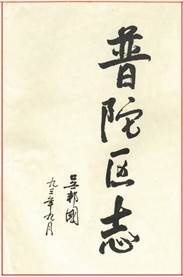 普陀区志
吴邦國
九三年九月